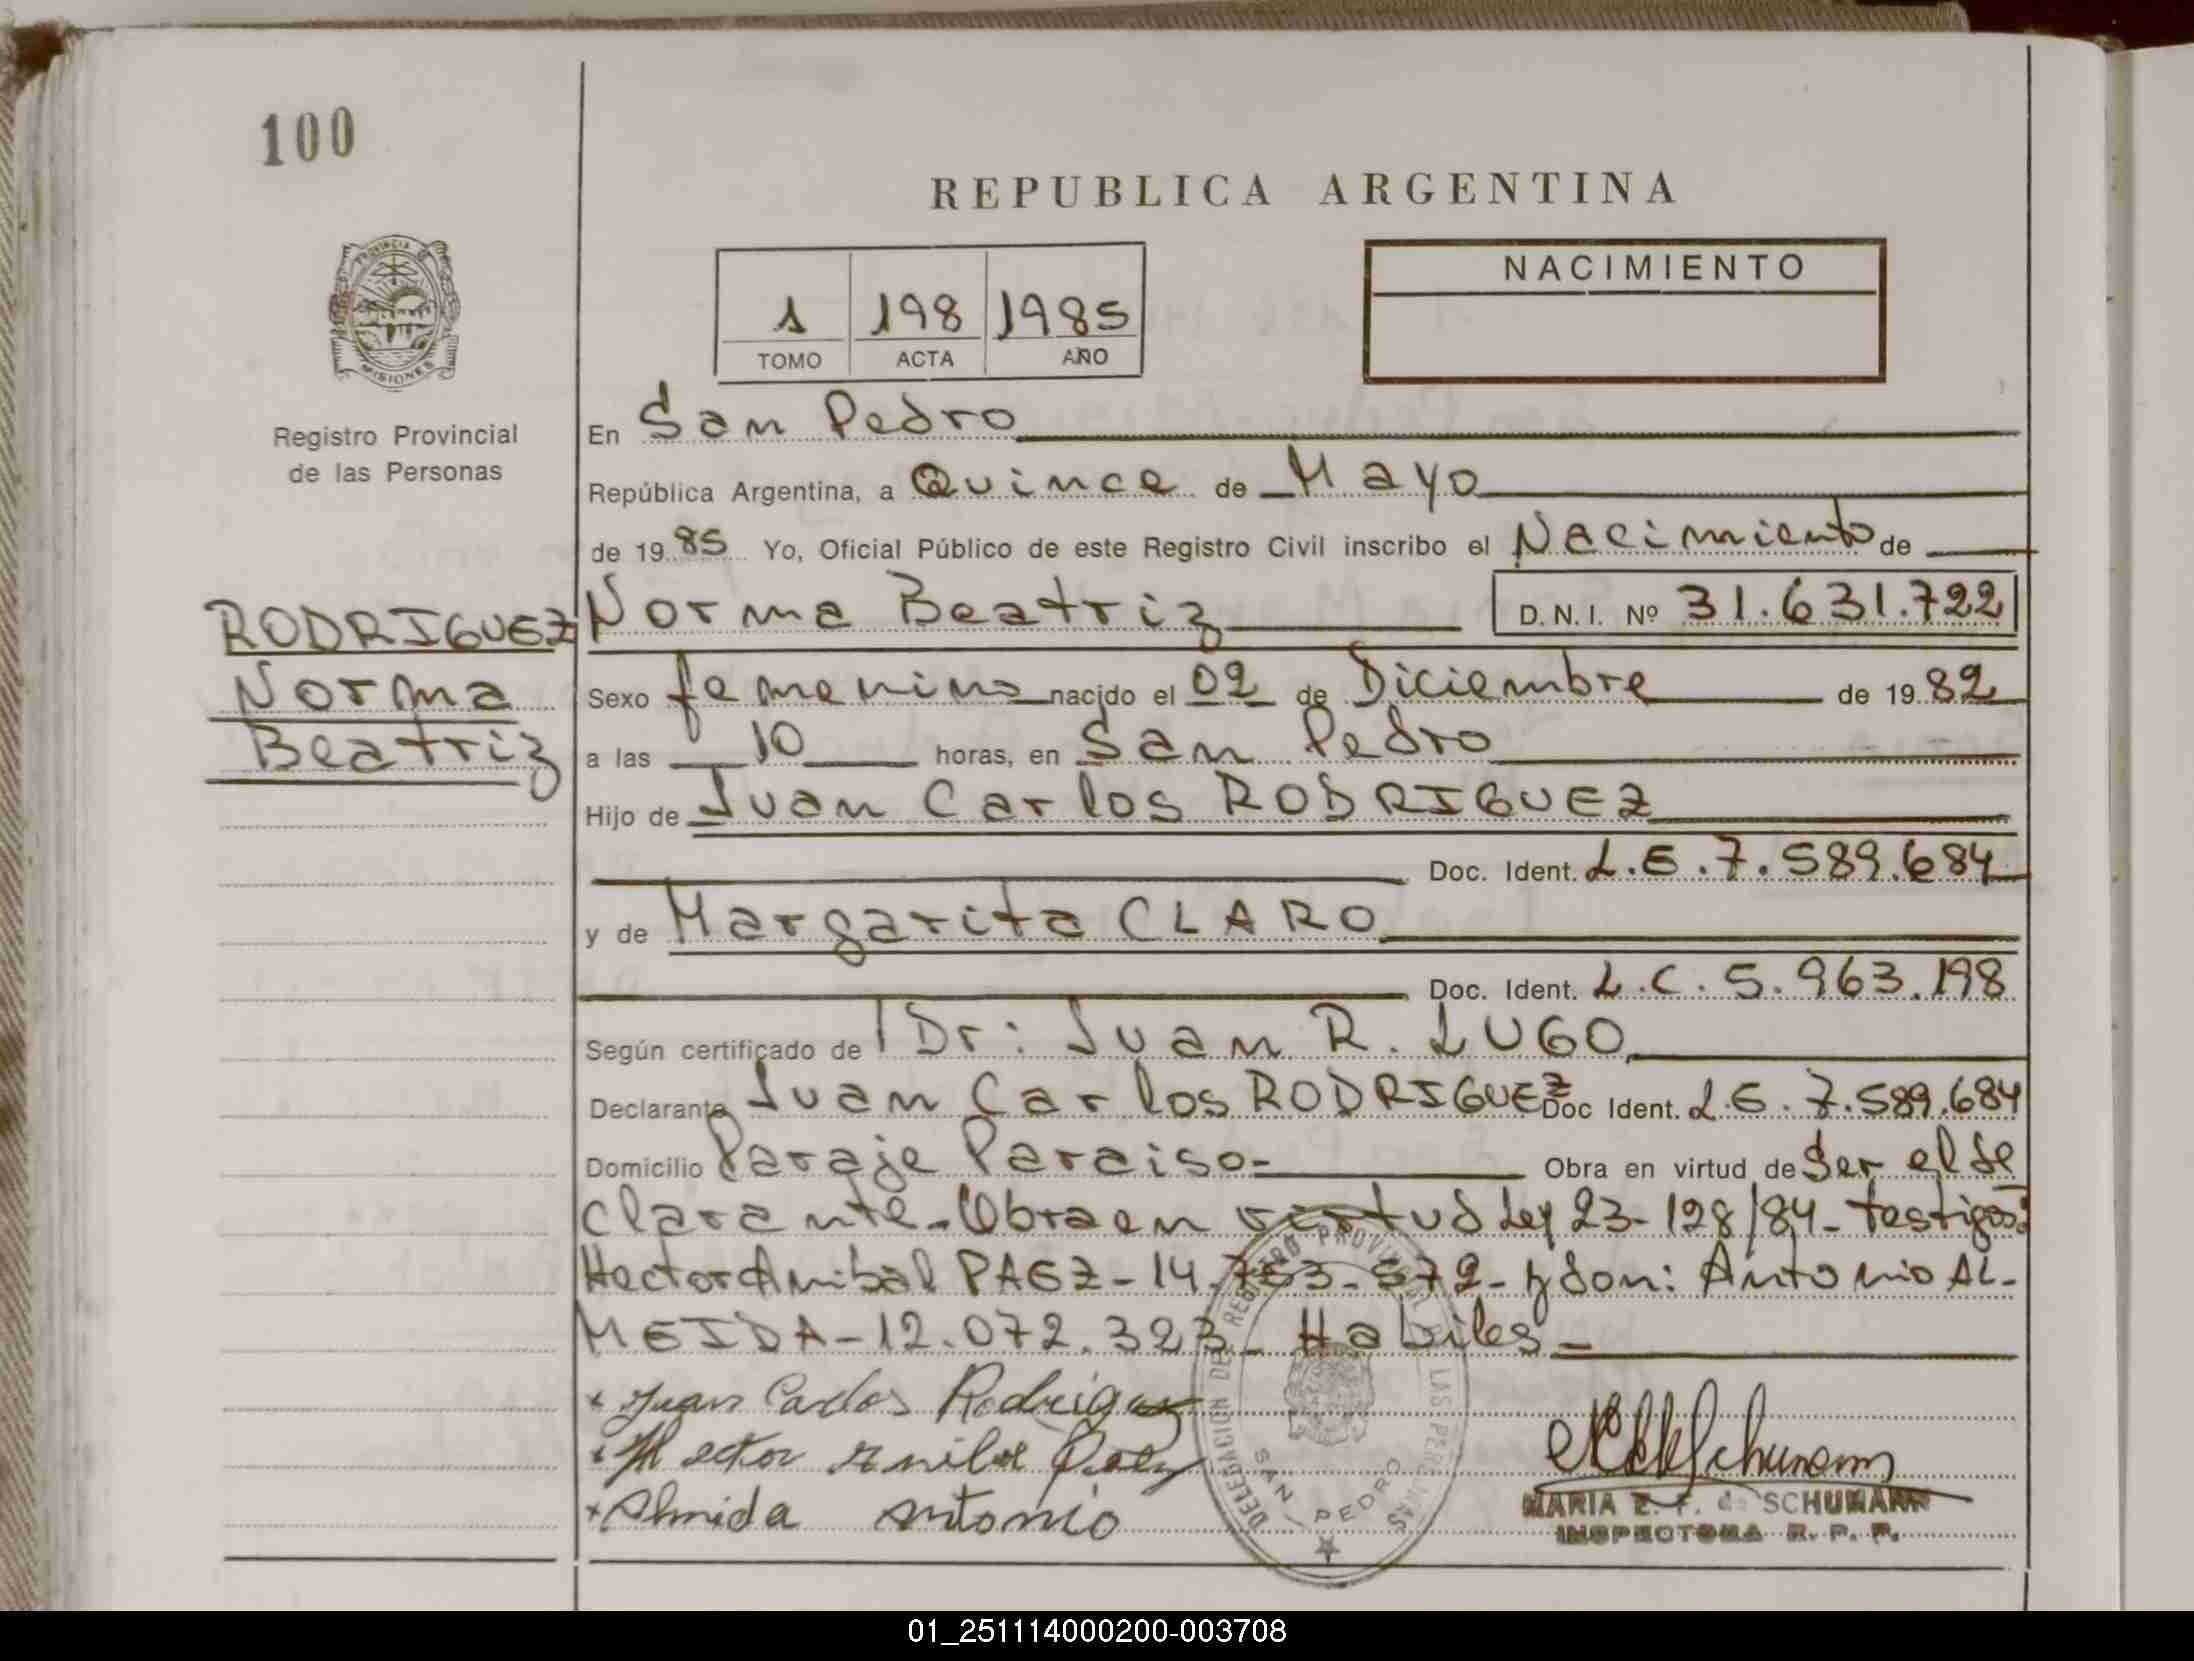 100
REPUBLICA ARGENTINA
PROVINCIA D
MISIONES
Registro Provincial
de las Personas
1 198 1985
TOMO ACTA AÑO
NACIMIENTO
En San Pedro
República Argentina, a Quince de Mayo
de 1985 Yo, Oficial Público de este Registro Civil inscribo el Nacimiento de
RODRIGUEZ
Norma
Beatriz
Norma Beatriz D. N. I. Nº 31.631.722
Sexo femenino nacido el 02 de Diciembre de 1982
a las 10 horas, en San Pedro
Hijo de Juan Carlos RODRIGUEZ
Doc. Ident. L.E.7.589.684
y de Margarita CLARO
Doc. Ident. L.C.5.963.198
Según certificado de Dr: Juan R. LUGO
Declarante Juan Carlos RODRIGUEZ Doc Ident. L.E.7.589.684
Domicilio Paraje Paraiso- Obra en virtud de Ser el de
clarante-Obra en virtud Ley 23-128/84-testigos:
Hector Anibal PAEZ-14.753-572-y don: Antonio AL-
MEIDA-12.072.323- Habiles-
Juan Carlos Rodriguez
Hector Anibal Paez
Almida Antonio
DELEGACION DEL REGISTRO PROVINCIAL DE LAS PERSONAS
SAN PEDRO
MARIA E. F. de SCHUMANN
INSPECTORA R. P. P.
01_251114000200-003708